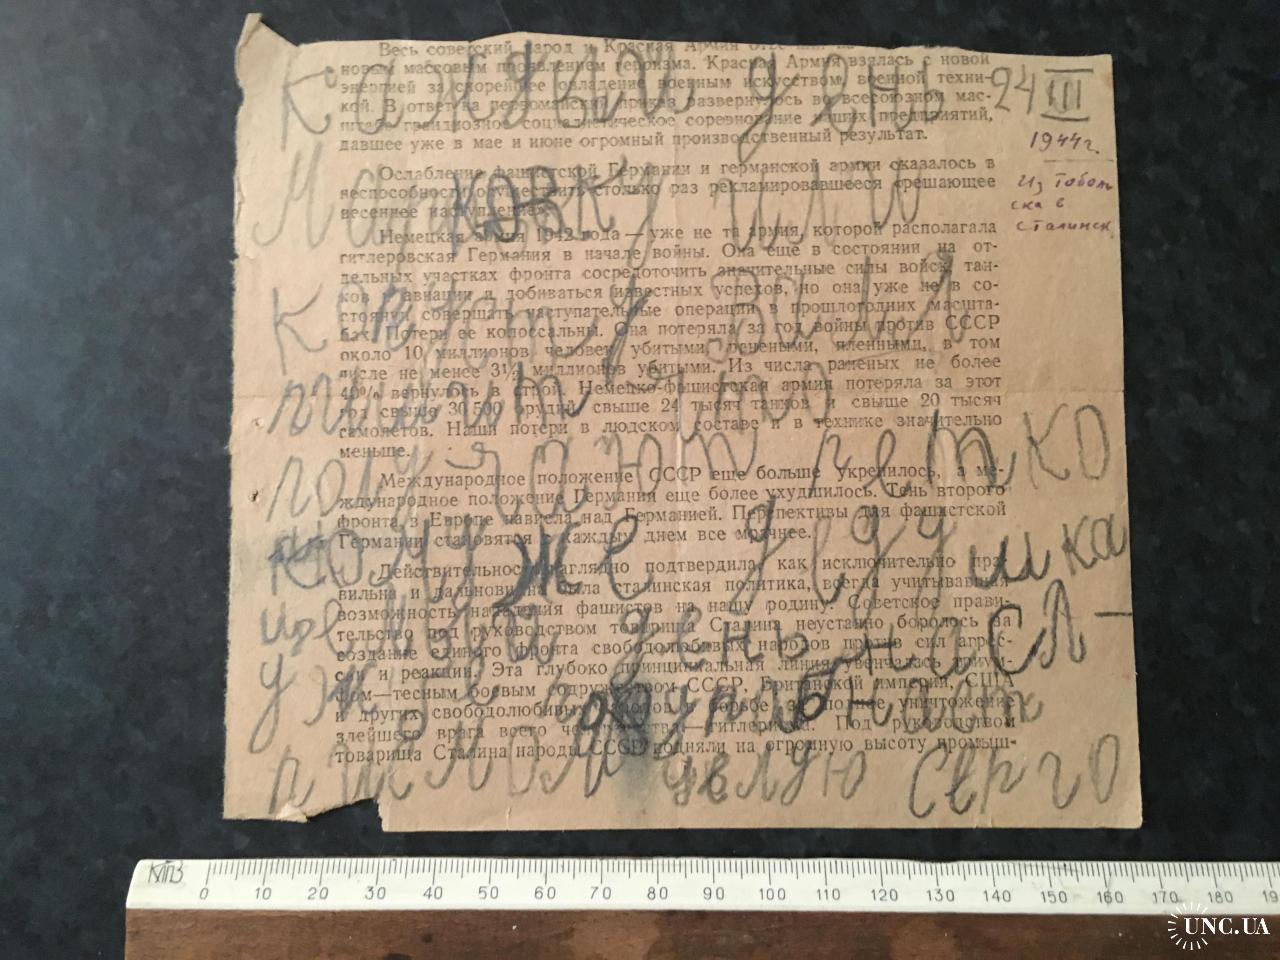 Весь советский народ и Красная Армия
новым массовым проявлением героизма. Красная Армия взялась с новой
энергией за скорейшее овладение военным искусством, военной техни-
кой. В ответ на первомайский приказ развернулось во всесоюзном мас-
штабе грандиозное социалистическое соревнование наших предприятий,
давшее уже в мае и июне огромный производственный результат.
Ослабление фашистской Германии и германской армии сказалось в
неспособности осуществить столько раз рекламировавшееся «решающее
весеннее наступление».
Немецкая армия 1942 года — уже не та армия, которой располагала
гитлеровская Германия в начале войны. Она еще в состоянии на от-
дельных участках фронта сосредоточить значительные силы войск, тан-
ков и авиации и добиваться известных успехов, но она уже не в со-
стоянии совершать наступательные операции в прошлогодних масшта-
бах. Потери ее колоссальны. Она потеряла за год войны против СССР
около 10 миллионов человек убитыми, ранеными, пленными, в том
числе не менее 3½ миллионов убитыми. Из числа раненых не более
40% вернулось в строй. Немецко-фашистская армия потеряла за этот
год свыше 30 500 орудий, свыше 24 тысяч танков и свыше 20 тысяч
самолетов. Наши потери в людском составе и в технике значительно
меньше.
Международное положение СССР еще больше укрепилось, а ме-
ждународное положение Германии еще более ухудшилось. Тень второго
фронта в Европе нависла над Германией. Перспективы для фашистской
Германии становятся с каждым днем все мрачнее.
Действительность наглядно подтвердила, как исключительно пра-
вильна и дальновидна была сталинская политика, всегда учитывавшая
возможность нападения фашистов на нашу родину. Советское прави-
тельство под руководством товарища Сталина неустанно боролось за
создание единого фронта свободолюбивых народов против сил агрес-
сии и реакции. Эта глубоко принципиальная линия увенчалась триум-
фом—тесным боевым содружеством СССР, Британской империи, США
и других свободолюбивых народов в борьбе за полное уничтожение
злейшего врага всего человечества—гитлеризма. Под руководством
товарища Сталина народы СССР подняли на огромную высоту промыш-
Каждый день
Маськовку или
конпту Валя
пишит что
получают четко
кому же дедушка
целый день
уж
Серго
24 III
1944г.
Из Тоболь
ска в
Сталинск.
МПЗ
0 10 20 30 40 50 60 70 80 90 100 110 120 130 140 150 160 170 180 19
UNC.UA